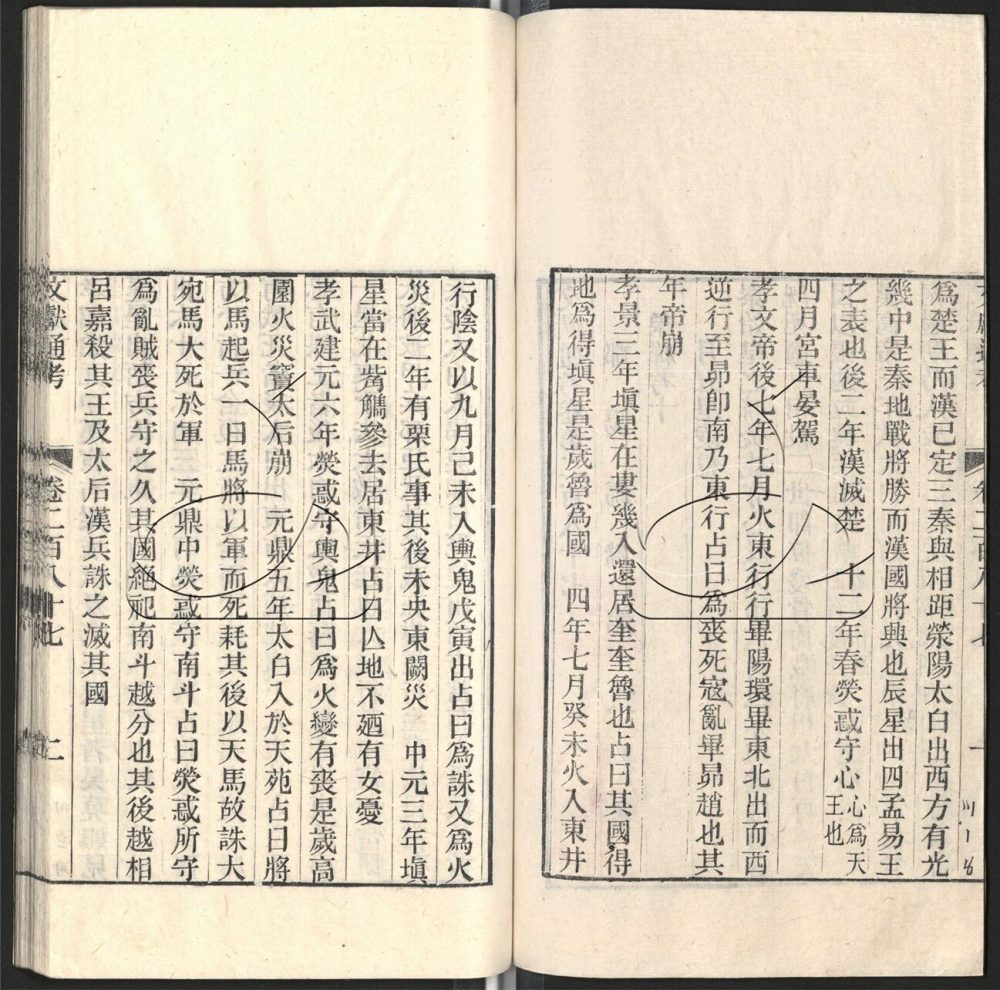 爲楚王而漢已定三秦與相距滎陽太白出西方有光
幾中是秦地戰將勝而漢國將興也辰星出四孟易王
之表也後二年漢滅楚 十二年春熒惑守心心爲天王也
四月宮車晏駕
孝文帝後七年七月火東行行畢陽環畢東北出而西
逆行至昴卽南乃東行占曰爲喪死寇亂畢昴趙也其
年帝崩
孝景三年塡星在婁幾入還居奎奎魯也占曰其國得
地爲得塡星是歲魯爲國 四年七月癸未火入東井
行陰又以九月己未入輿鬼戊寅出占曰爲誅又爲火
災後二年有栗氏事其後未央東闕災 中元三年塡
星當在觜觿參去居東井占曰亾地不廼有女憂
孝武建元六年熒惑守輿鬼占曰爲火變有喪是歲高
園火災竇太后崩 元鼎五年太白入於天苑占曰將
以馬起兵一曰馬將以軍而死耗其後以天馬故誅大
宛馬大死於軍 元鼎中熒惑守南斗占曰熒惑所守
爲亂賊喪兵守之久其國絕祀南斗越分也其後越相
呂嘉殺其王及太后漢兵誅之滅其國
文獻通考 卷二百八十七 二